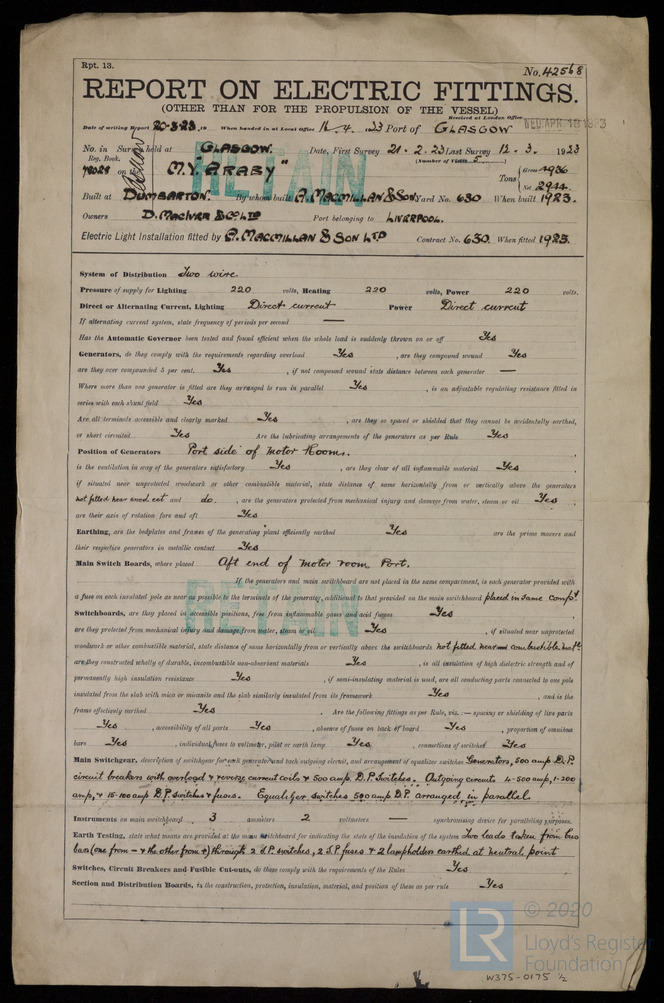 Rpt. 13.
No. 42568
REPORT ON ELECTRIC FITTINGS.
(OTHER THAN FOR THE PROPULSION OF THE VESSEL)
Received at London Office
WED. APR. 18 1923
Date of writing Report 20-3-23, 19 When handed in at Local Office 16. 4. 1923 Port of GLASGOW
No. in Survey held at GLASGOW. Date, First Survey 21-2-23 Last Survey 12-3. 1923
Reg. Book. (Number of Visits 5
78028 on the M.Y. "ARABY" Tons { Gross 4936
Net 2944
RETAIN
Built at DUMBARTON. By whom built A. MACMILLAN & SON Yard No. 630 When built 1923.
Owners D. MACIVER & CO LTD Port belonging to LIVERPOOL.
Electric Light Installation fitted by A. MACMILLAN & SON LTD Contract No. 630. When fitted 1923.
System of Distribution Two wire
Pressure of supply for Lighting 220 volts, Heating 220 volts, Power 220 volts.
Direct or Alternating Current, Lighting Direct current Power Direct current
If alternating current system, state frequency of periods per second —
Has the Automatic Governor been tested and found efficient when the whole load is suddenly thrown on or off Yes
Generators, do they comply with the requirements regarding overload Yes, are they compound wound Yes
are they over compounded 5 per cent. Yes, if not compound wound state distance between each generator —
Where more than one generator is fitted are they arranged to run in parallel Yes, is an adjustable regulating resistance fitted in
series with each shunt field Yes
Are all terminals accessible and clearly marked Yes, are they so spaced or shielded that they cannot be accidentally earthed,
or short circuited Yes Are the lubricating arrangements of the generators as per Rule Yes
Position of Generators Port side of Motor Room.
is the ventilation in way of the generators satisfactory Yes, are they clear of all inflammable material Yes,
if situated near unprotected woodwork or other combustible material, state distance of same horizontally from or vertically above the generators
not fitted near wood ect and do., are the generators protected from mechanical injury and damage from water, steam or oil Yes,
are their axis of rotation fore and aft Yes
Earthing, are the bedplates and frames of the generating plant efficiently earthed Yes are the prime movers and
their respective generators in metallic contact Yes
Main Switch Boards, where placed Aft end of motor room Port.
If the generators and main switchboard are not placed in the same compartment, is each generator provided with
a fuse on each insulated pole as near as possible to the terminals of the generator, additional to that provided on the main switchboard placed in same compt
RETAIN
Switchboards, are they placed in accessible positions, free from inflammable gases and acid fumes Yes
are they protected from mechanical injury and damage from water, steam or oil Yes, if situated near unprotected
woodwork or other combustible material, state distance of same horizontally from or vertically above the switchboards not fitted near combustible mat
are they constructed wholly of durable, incombustible non-absorbent materials Yes, is all insulation of high dielectric strength and of
permanently high insulation resistance Yes, if semi-insulating material is used, are all conducting parts connected to one pole
insulated from the slab with mica or micanite and the slab similarly insulated from its framework Yes, and is the
frame effectively earthed Yes. Are the following fittings as per Rule, viz. :— spacing or shielding of live parts
Yes, accessibility of all parts Yes, absence of fuses on back of board Yes, proportion of omnibus
bars Yes, individual fuses to voltmeter, pilot or earth lamp Yes, connections of switches Yes
Main Switchgear, description of switchgear for each generator and each outgoing circuit, and arrangement of equalizer switches Generators, 500 amp D.P.
circuit breakers with overload & reverse current coils & 500 amp. D.P. Switches. Outgoing circuits 4-500 amp, 1-200
amp, & 15-100 amp D.P. switches & fuses. Equalizer switches 500 amp D.P. arranged in parallel
Instruments on main switchboard 3 ammeters 2 voltmeters — synchronising device for paralleling purposes.
Earth Testing, state what means are provided at the main switchboard for indicating the state of the insulation of the system Two leads taken from bus
bars (one from – & the other from +) through 2 S.P. switches, 2 S.P. fuses & 2 lampholders earthed at neutral point
Switches, Circuit Breakers and Fusible Cut-outs, do these comply with the requirements of the Rules Yes
Section and Distribution Boards, is the construction, protection, insulation, material, and position of these as per rule Yes
LR
© 2020
Lloyd's Register
Foundation
W375-0175 1/2